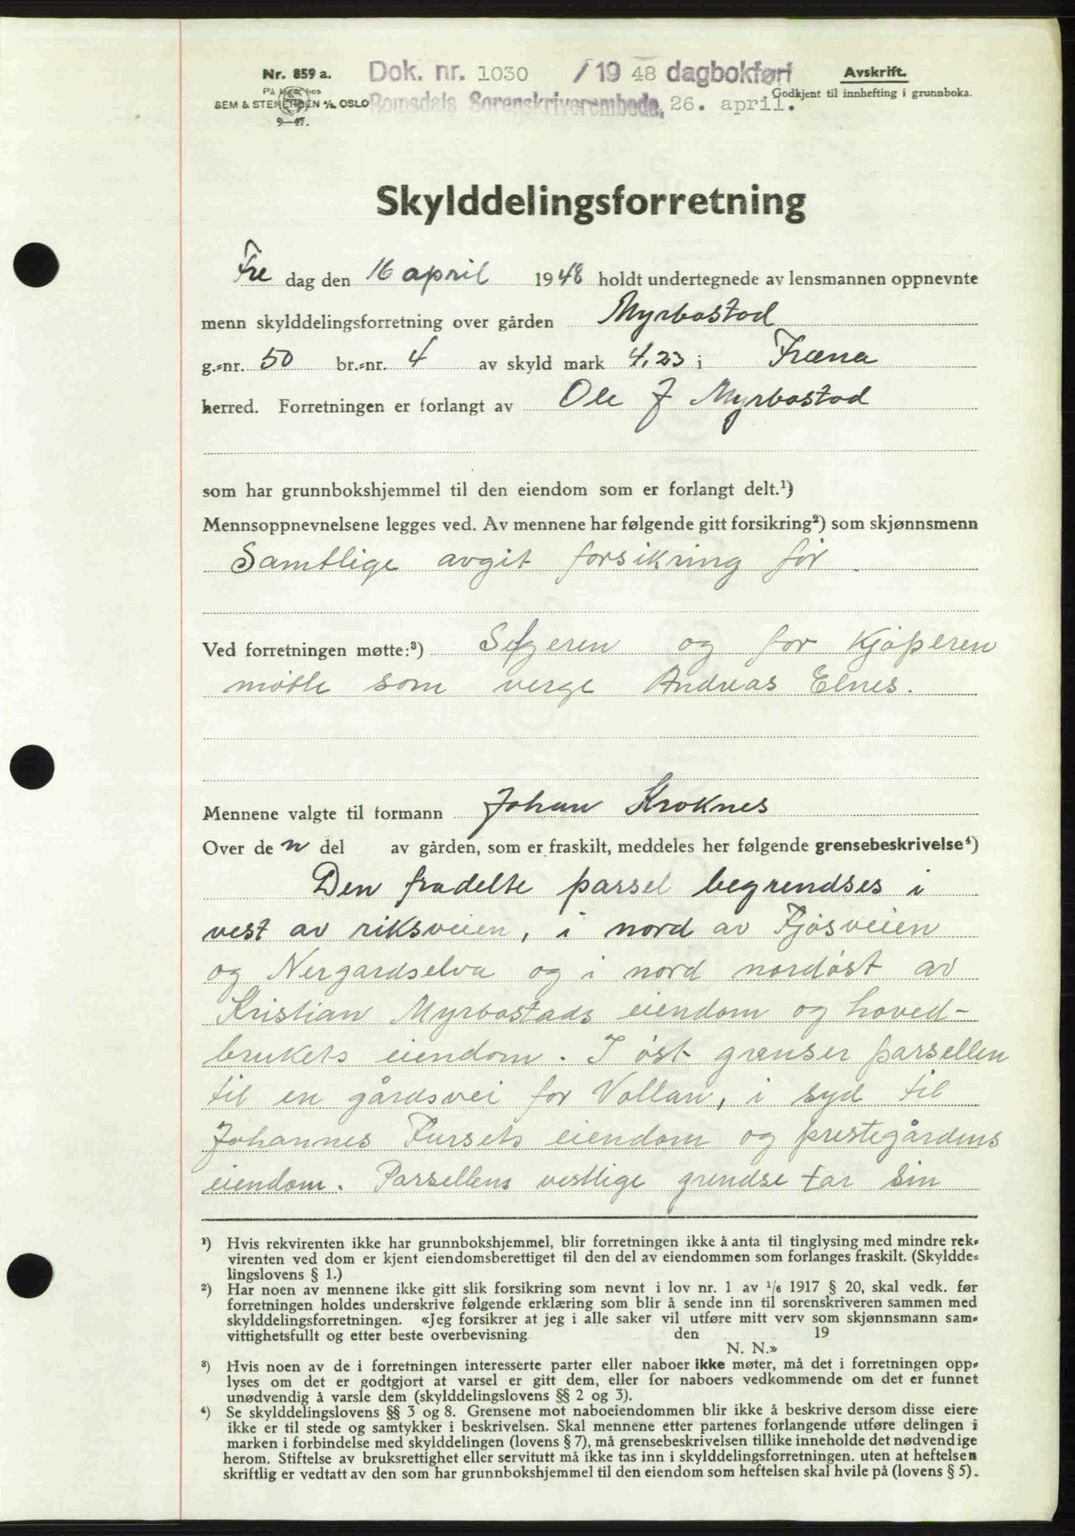 Nr. 859 a.
Dok. nr. 1030 /19 48 dagbokført
Avskrift.
På lager hos
SEM & STENERSEN A/S, OSLO
Romsdals Sorenskriverembede, 26. april.
Godkjent til innhefting i grunnboka.
9—47.
Skylddelingsforretning
Fre dag den 16 april 1948 holdt undertegnede av lensmannen oppnevnte
menn skylddelingsforretning over gården Myrbostad
g.-nr. 50 br.-nr. 4 av skyld mark 4,23 i Fræna
herred. Forretningen er forlangt av Ole J Myrbostad
som har grunnbokshjemmel til den eiendom som er forlangt delt.¹)
Mennsoppnevnelsene legges ved. Av mennene har følgende gitt forsikring²) som skjønnsmenn
Samtlige avgit forsikring før.
Ved forretningen møtte:³) Selgeren og for Kjøperen
møtte som verge Andreas Elnes.
Mennene valgte til formann Johan Kroknes
Over de n del av gården, som er fraskilt, meddeles her følgende grensebeskrivelse⁴)
Den fradelte parsel begrendses i
vest av riksveien, i nord av Fjøsveien
og Nergardselva og i nord nordøst av
Kristian Myrbostads eiendom og hoved-
brukets eiendom. I øst grenser parsellen
til en gårdsvei for Vollan, i syd til
Johannes Fursets eiendom og prestegårdens
eiendom. Parsellens vestlige grendse tar sin
¹) Hvis rekvirenten ikke har grunnbokshjemmel, blir forretningen ikke å anta til tinglysing med mindre rek-
virenten ved dom er kjent eiendomsberettiget til den del av eiendommen som forlanges fraskilt. (Skyldde-
lingslovens § 1.)
²) Har noen av mennene ikke gitt slik forsikring som nevnt i lov nr. 1 av ¹/₆ 1917 § 20, skal vedk. før
forretningen holdes underskrive følgende erklæring som blir å sende inn til sorenskriveren sammen med
skylddelingsforretningen. «Jeg forsikrer at jeg i alle saker vil utføre mitt verv som skjønnsmann sam-
vittighetsfullt og etter beste overbevisning den 19
N. N.»
³) Hvis noen av de i forretningen interesserte parter eller naboer ikke møter, må det i forretningen opp-
lyses om det er godtgjort at varsel er gitt dem, eller for naboers vedkommende om det er funnet
unødvendig å varsle dem (skylddelingslovens §§ 2 og 3).
⁴) Se skylddelingslovens §§ 3 og 8. Grensene mot naboeiendommen blir ikke å beskrive dersom disse eiere
ikke er til stede og samtykker i beskrivelsen. Skal mennene etter partenes forlangende utføre delingen i
marken i forbindelse med skylddelingen (lovens § 7), må grensebeskrivelsen tillike inneholde det nødvendige
herom. Stiftelse av bruksrettighet eller servitutt må ikke tas inn i skylddelingsforretningen. uten at heftelsen
skriftlig er vedtatt av den som har grunnbokshjemmel til den eiendom som heftelsen skal hvile på (lovens § 5).